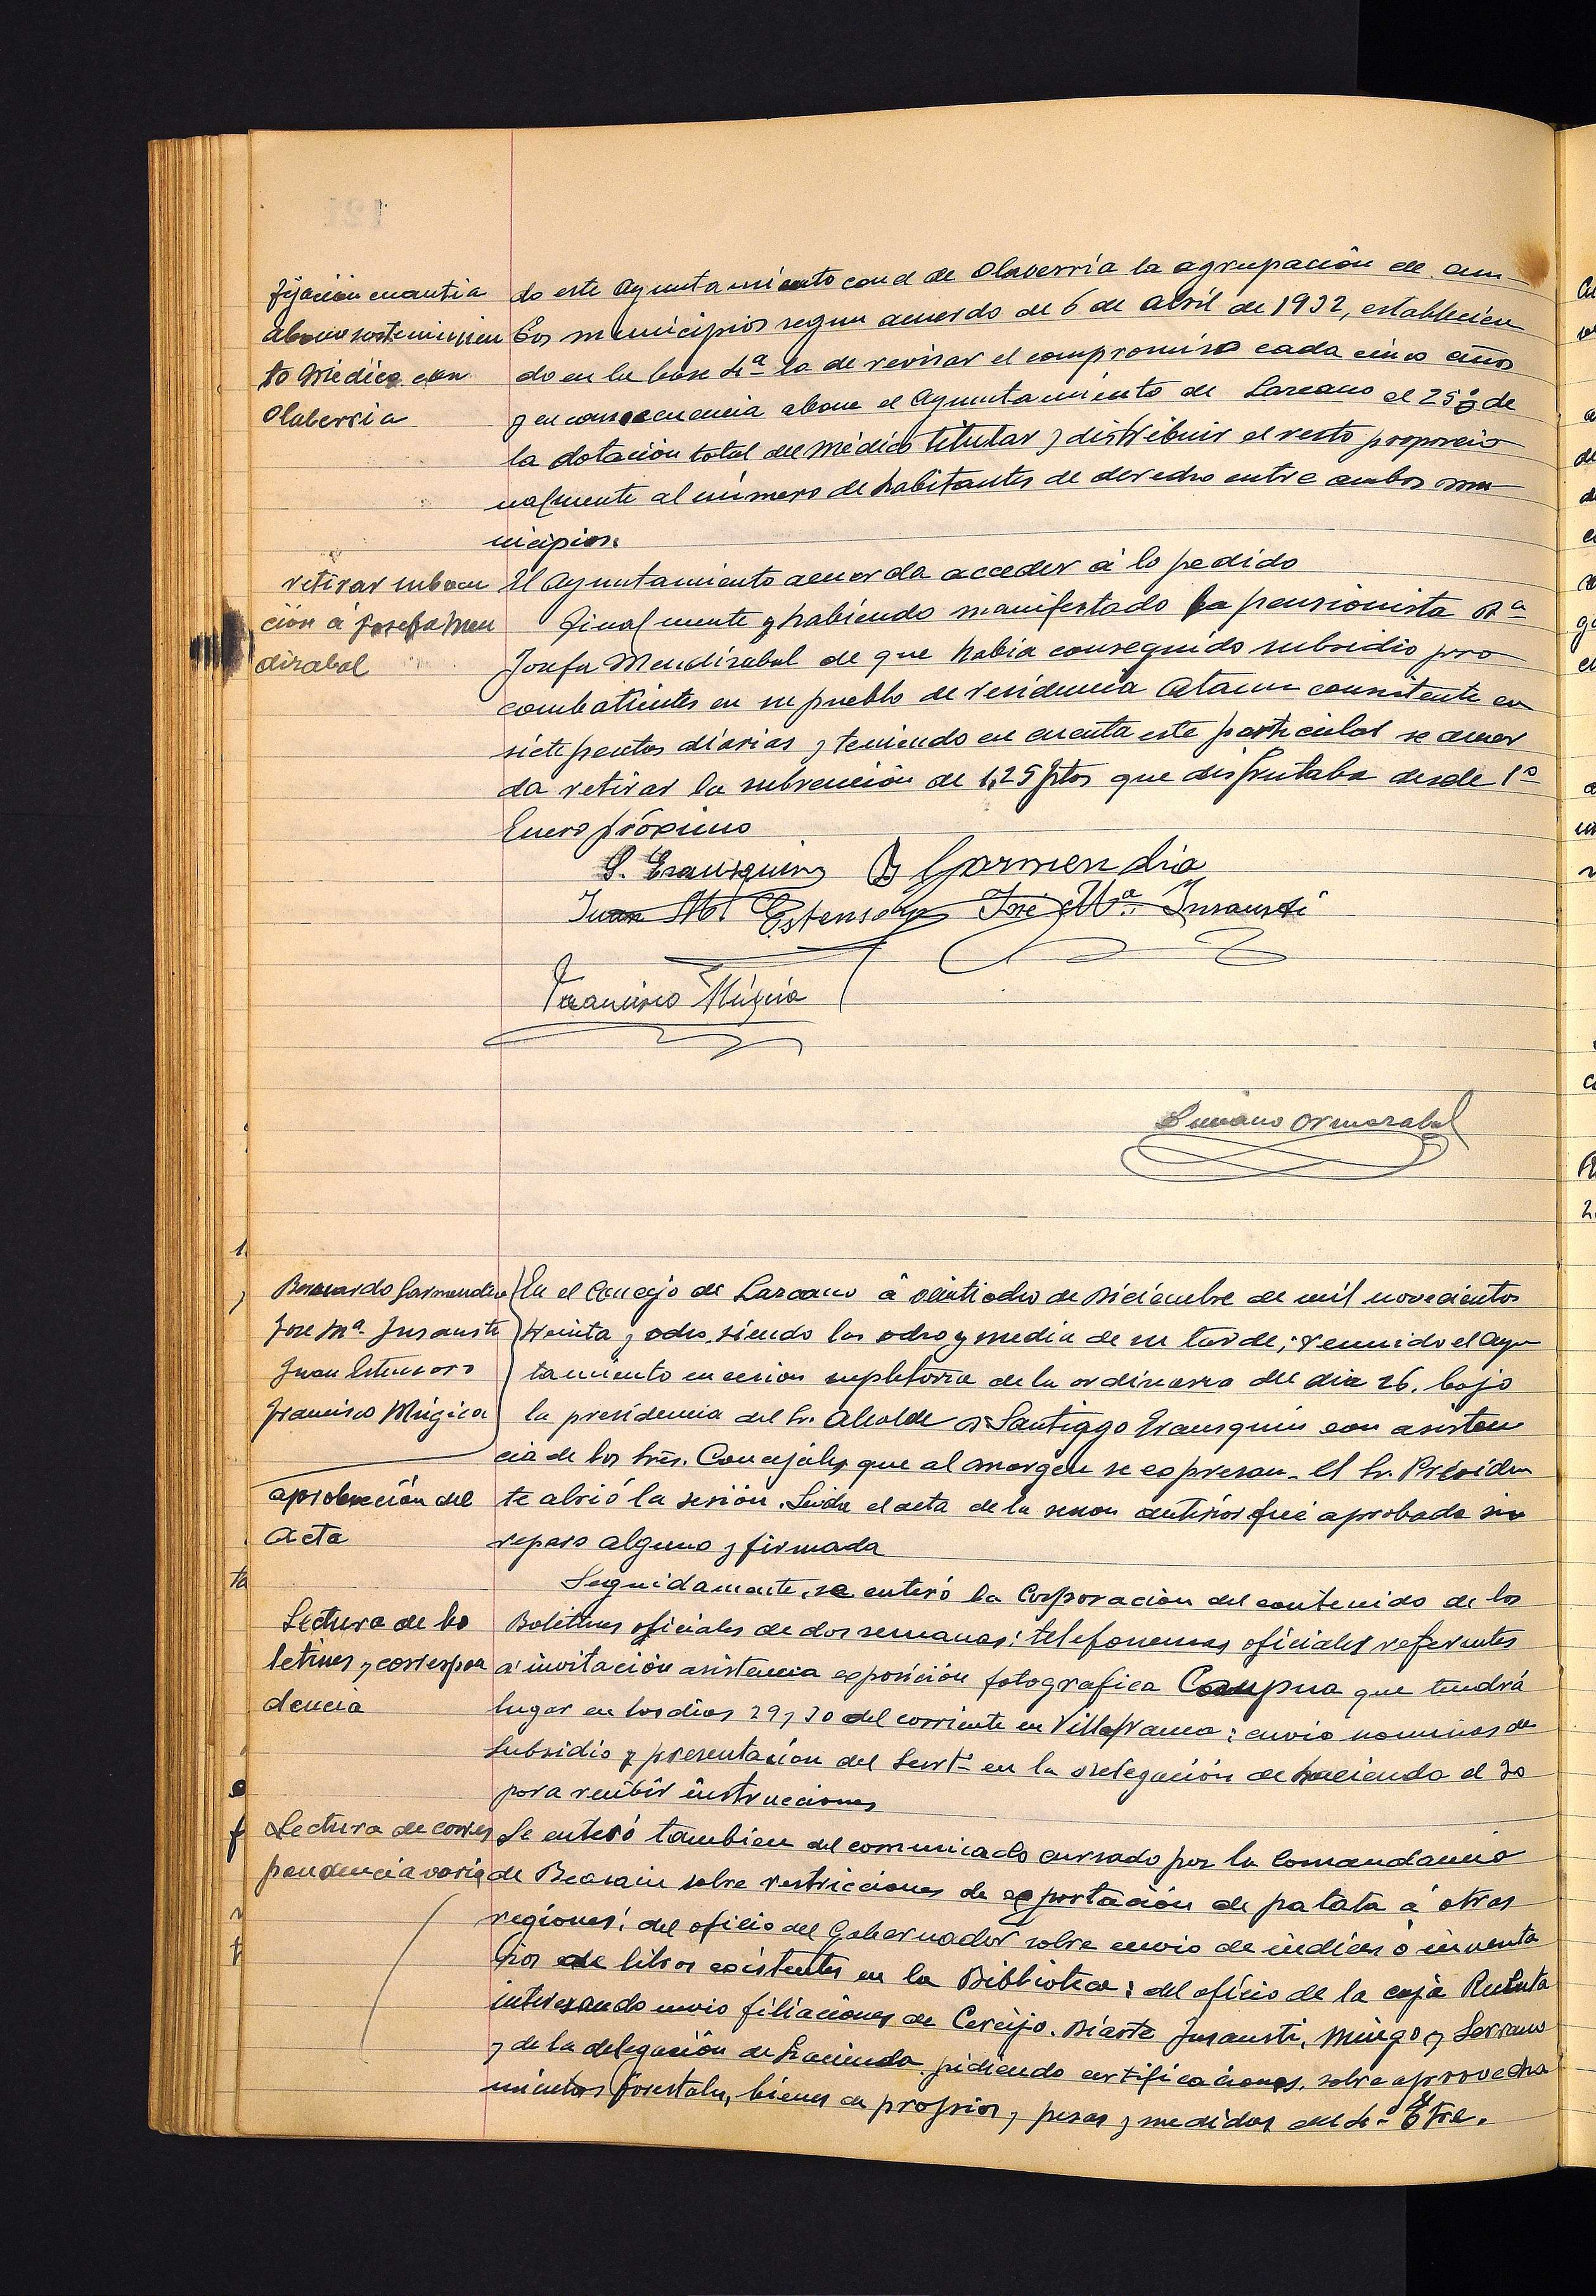 fijación cuantia
abono sostenimien
to Médico con
Olaberria
do este Ayuntamiento con el de Olaberría la agrupación de am-
bos municipios segun acuerdo de 6 de Abril de 1932, establecien
do en la base 4ª la de revisar el compromiso cada cinco años
y en consecuencia abone el Ayuntamiento de Lazcano el 25% de
la dotación total del Médico titular y distribuir el resto proporcio
nalmente al número de habitantes de derecho entre ambos mu
nicipios.
retirar subven
ción á Josefa Men
dizabal
El Ayuntamiento acuerda acceder á lo pedido
Finalmente y habiendo manifestado la pensionista Dª
Josefa Mendizabal de que habia conseguido subsidio pro
combatientes en su pueblo de residencia Ataun consistente en
siete pesetas diarias y teniendo en cuenta este particular se acuer
da retirar la subvención de 1,25 ptas que disfrutaba desde 1º
Enero próximo
S. Erausquin B Garmendia
Juan M. Estensoro José Mª. Insausti
Francisco Múgica
Luciano Ormazabal
Bernardo Garmendia
Jose Mª. Insausti
Juan Estensoro
Francisco Múgica
En el Concejo de Lazcano á veintiocho de Diciembre de mil novecientos
treinta y ocho, siendo las ocho y media de su tarde; reunido el Ayun
tamiento en sesion supletoria de la ordinaria del dia 26, bajo
la presidencia del Sr. Alcalde D. Santiago Erausquin con asisten
cia de los Sres. Concejales que al margen se expresan. El Sr. Presiden
aprobación del
Acta
te abrió la sesión. Leida el acta de la sesion anterior fué aprobada sin
reparo alguno y firmada
Lectura de bo
letines y correspon
dencia
Seguidamente, se enteró la Corporación del contenido de los
Boletines oficiales de dos semanas: telefonemas oficiales referentes
á invitación asistencia exposición fotografica Campua que tendrá
lugar en los dias 29 y 30 del corriente en Villafranca: envio nominas de
Subsidio y presentacion del Secrtº en la Delegación de hacienda el 30
para recibir instrucciones
Lectura de corres
pondencia varia
Se enteró tambien del comunicado cursado por la Comandancia
de Beasain sobre restricciones de exportación de patata á otras
regiones: del oficio del Gobernador sobre envio de indices ó inventa
rios de libros existentes en la Biblioteca: del oficio de la caja Recluta
interesando envio filiaciones de Cereijo. Insausti, y Serrano
y de la delegación de hacienda pidiendo certificaciones sobre aprovecha
mientos forestales, bienes de propios, pesas y medidas del 4º Etre.